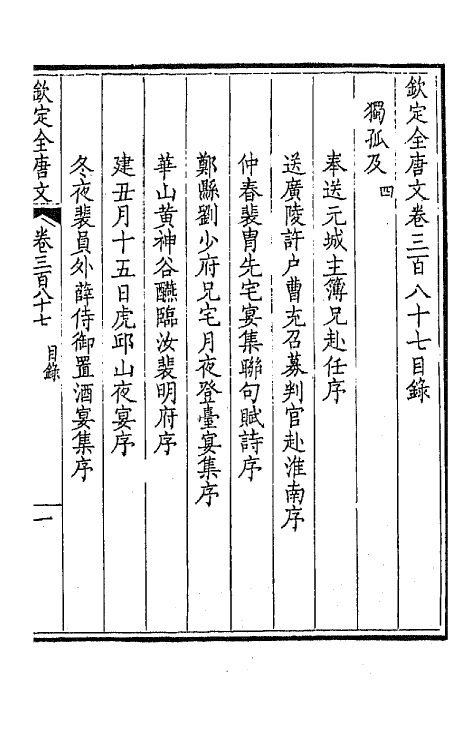 欽定全唐文卷三百八十七目錄
獨孤及 四
奉送元城主簿兄赴任序
送廣陵許户曹充召募判官赴淮南序
仲春裴胄先宅宴集聯句賦詩序
鄭縣劉少府兄宅月夜登臺宴集序
華山黃神谷醼臨汝裴明府序
建丑月十五日虎邱山夜宴序
冬夜裴員外薛侍御置酒宴集序
欽定全唐文 卷三百八十七 目錄 一